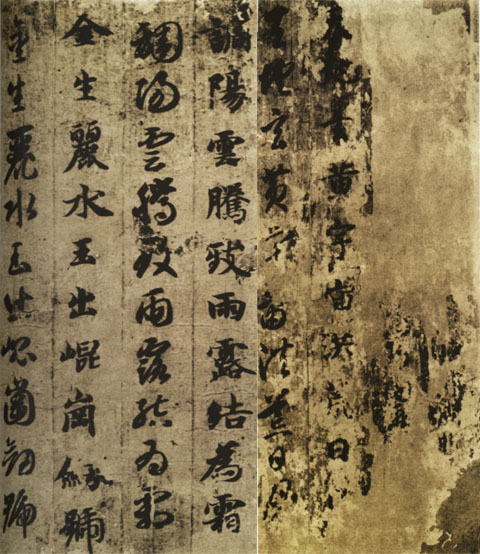 玄黃宇宙洪荒日
玄黃宇宙洪荒日
調陽雲騰致雨露結為霜
調陽雲騰致雨露結為霜
金生麗水玉出崐崗劒號
金生麗水玉出崐崗劒號